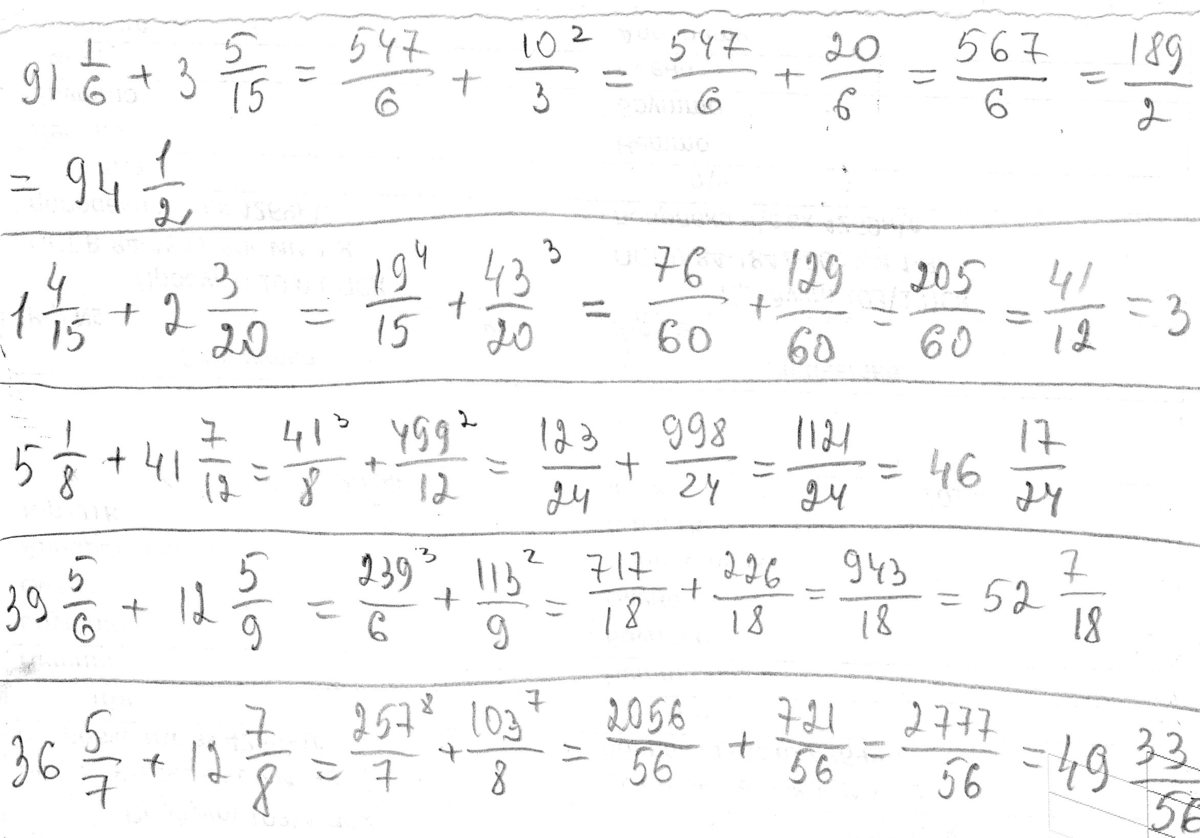 91 1/6 + 3 5/15 = 547/6 + 10²/3 = 547/6 + 20/6 = 567/6 = 189/2
= 94 1/2
1 4/15 + 2 3/20 = 19⁴/15 + 43³/20 = 76/60 + 129/60 = 205/60 = 41/12 = 3
5 1/8 + 41 7/12 = 41³/8 + 499²/12 = 123/24 + 998/24 = 1121/24 = 46 17/24
39 5/6 + 12 5/9 = 239³/6 + 113²/9 = 717/18 + 226/18 = 943/18 = 52 7/18
36 5/7 + 12 7/8 = 257⁸/7 + 103⁷/8 = 2056/56 + 721/56 = 2777/56 = 49 33/56